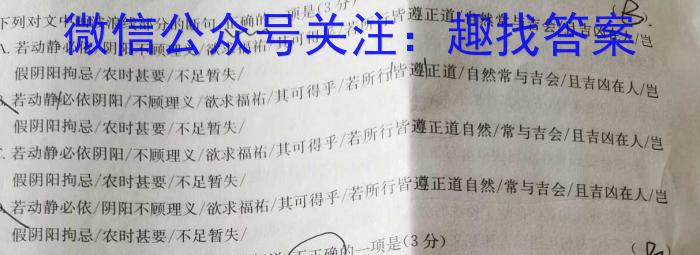 下列对文中 部分的断句,正确的一项是(3分)
微信公众号关注：趣找答案
A.若动静 遵正道/自然/常与吉会/且吉凶在人/岂
假阴阳拘忌/农时甚要/不足暂失/
B.若动静必依阴阳/不顾理义/欲求福祐/其可得乎/若所行皆遵正道/自然常与吉会/且吉凶在人/岂
假阴阳拘忌/农时甚要/不足暂失/
C.若动静必依阴阳/不顾理义/欲求福祐/其可得乎/若所行皆遵正道自然/常与吉会/且吉凶在人/岂
假阴阳拘忌/农时甚要/不足暂失/
若动静必依/阴阳不顾理义/欲求福祐/其可得乎/若所行皆遵正道自然/常与吉会/且吉凶在人/岂
假阴阳拘忌/农时甚要/不足暂失/
不正确的一项是(3分)